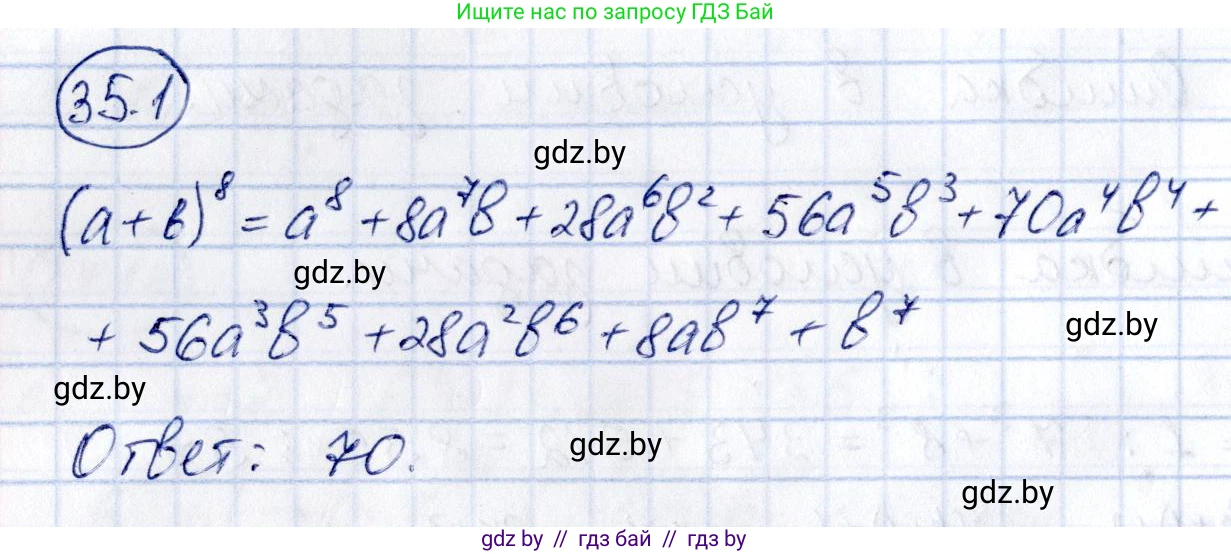 Ищите нас по запросу ГДЗ Бай
35.1
gdz.by
(a+в)⁸ = a⁸ + 8a⁷в + 28a⁶в² + 56a⁵в³ + 70a⁴в⁴ +
gdz.by
+ 56a³в⁵ + 28a²в⁶ + 8aв⁷ + в⁷
gdz.by
gdz.by
Ответ: 70.
gdz.by
gdz.by
gdz by // гдз бай // гдз by